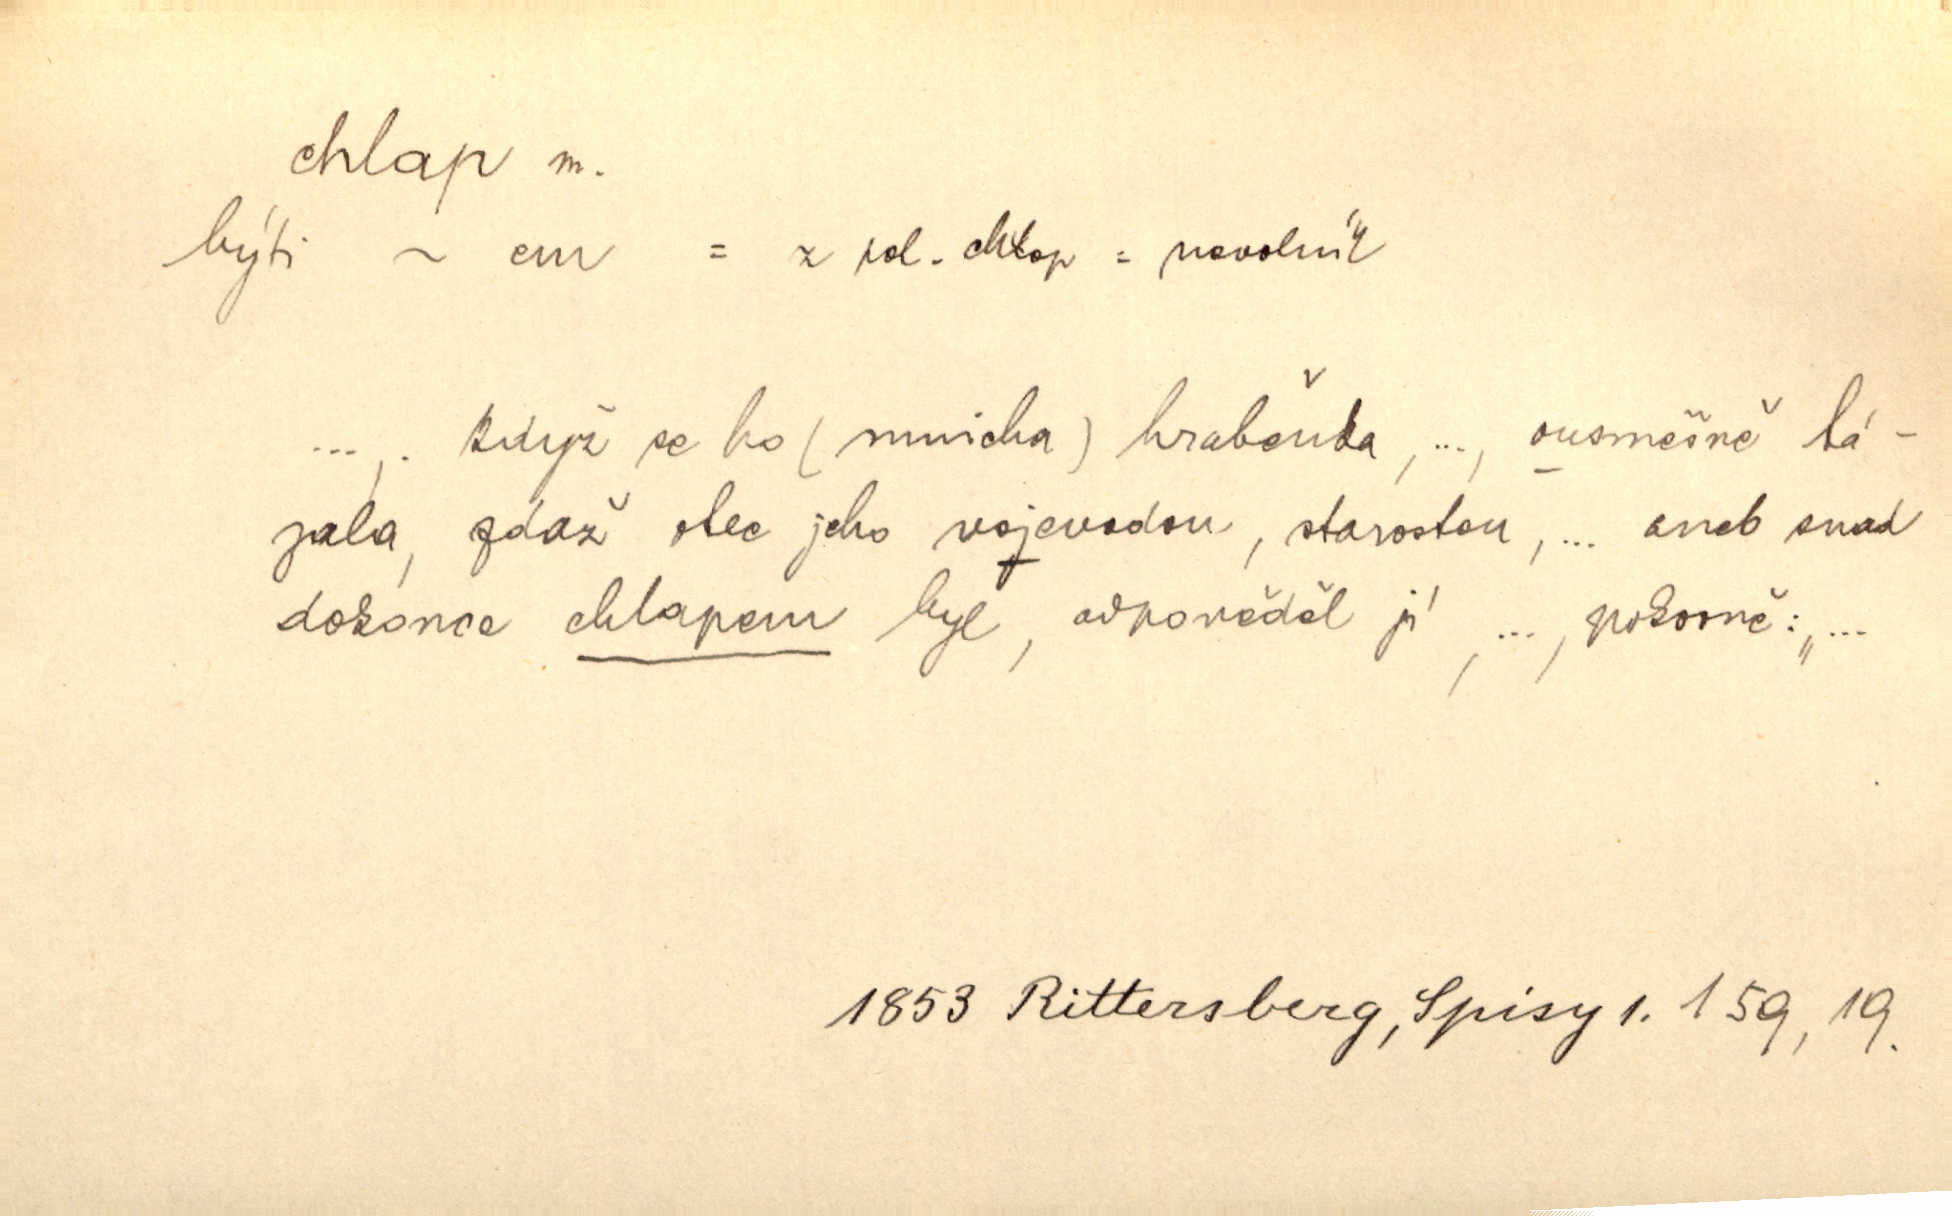 chlap m.
býti ~ em = z pol. chłop = nevolník
..., . když se ho (mnicha) hraběnka, ..., ousměšně tá-
zala, zdaž otec jeho vojevodou, starostou, ... aneb snad
dokonce chlapem byl, odpověděl jí , ..., pokorně: „...
1853 Rittersberg, Spisy 1. 159, 19.